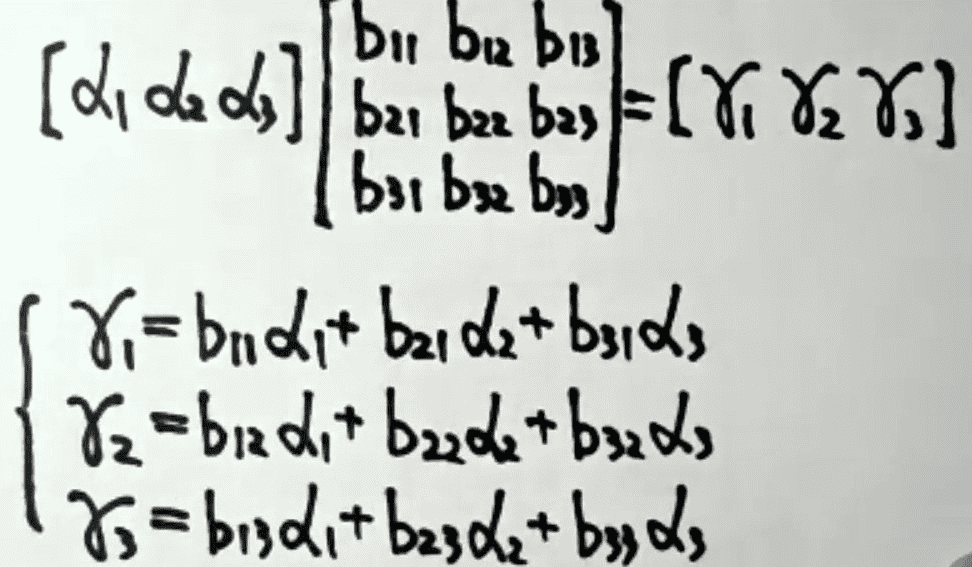 [α₁ α₂ α₃] [b₁₁ b₁₂ b₁₃
b₂₁ b₂₂ b₂₃
b₃₁ b₃₂ b₃₃] = [γ₁ γ₂ γ₃]
γ₁ = b₁₁α₁ + b₂₁α₂ + b₃₁α₃
γ₂ = b₁₂α₁ + b₂₂α₂ + b₃₂α₃
γ₃ = b₁₃α₁ + b₂₃α₂ + b₃₃α₃